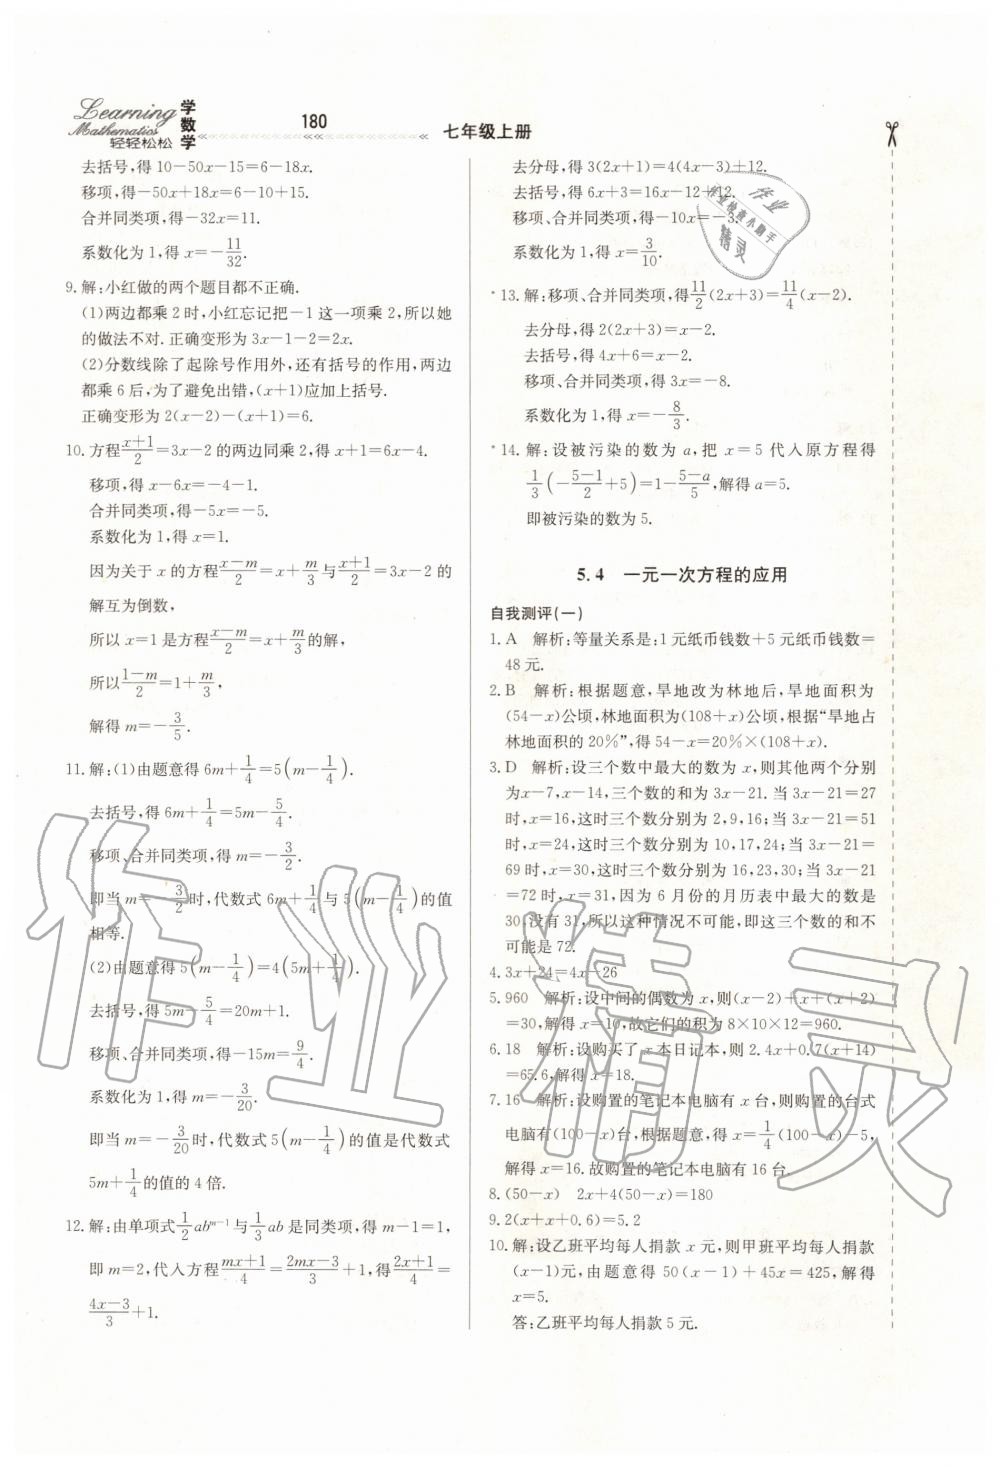 Learning
Mathematics
轻轻松松
学数学
180
七年级上册
去括号,得 10-50x-15=6-18x.
移项,得-50x+18x=6-10+15.
合并同类项,得-32x=11.
系数化为 1,得 x=-11/32.
9. 解:小红做的两个题目都不正确.
(1)两边都乘 2 时,小红忘记把-1 这一项乘 2,所以她
的做法不对. 正确变形为 3x-1-2=2x.
(2)分数线除了起除号作用外,还有括号的作用,两边
都乘 6 后,为了避免出错,(x+1)应加上括号.
正确变形为 2(x-2)-(x+1)=6.
10. 方程(x+1)/2=3x-2 的两边同乘 2,得 x+1=6x-4.
移项,得 x-6x=-4-1.
合并同类项,得-5x=-5.
系数化为 1,得 x=1.
因为关于 x 的方程(x-m)/2=x+m/3与(x+1)/2=3x-2 的
解互为倒数,
所以 x=1 是方程(x-m)/2=x+m/3的解,
所以(1-m)/2=1+m/3,
解得 m=-3/5.
11. 解:(1)由题意得 6m+1/4=5(m-1/4).
去括号,得 6m+1/4=5m-5/4.
移项、合并同类项,得 m=-3/2.
即当 m=-3/2时,代数式 6m+1/4与 5(m-1/4)的值
相等.
(2)由题意得 5(m-1/4)=4(5m+1/4).
去括号,得 5m-5/4=20m+1.
移项、合并同类项,得-15m=9/4.
系数化为 1,得 m=-3/20.
即当 m=-3/20时,代数式 5(m-1/4)的值是代数式
5m+1/4的值的 4 倍.
12. 解:由单项式1/2ab^(m-1)与1/3ab 是同类项,得 m-1=1,
即 m=2,代入方程(mx+1)/4=(2mx-3)/3+1,得(2x+1)/4=
(4x-3)/3+1.
去分母,得 3(2x+1)=4(4x-3)+12.
去括号,得 6x+3=16x-12+12.
移项、合并同类项,得-10x=-3.
系数化为 1,得 x=3/10.
*13. 解:移项、合并同类项,得11/2(2x+3)=11/4(x-2).
去分母,得 2(2x+3)=x-2.
去括号,得 4x+6=x-2.
移项、合并同类项,得 3x=-8.
系数化为 1,得 x=-8/3.
*14. 解:设被污染的数为 a,把 x=5 代入原方程得
1/3(-(5-1)/2+5)=1-(5-a)/5,解得 a=5.
即被污染的数为 5.
5.4 一元一次方程的应用
自我测评(一)
1. A 解析:等量关系是:1 元纸币钱数+5 元纸币钱数=
48 元.
2. B 解析:根据题意,旱地改为林地后,旱地面积为
(54-x)公顷,林地面积为(108+x)公顷,根据“旱地占
林地面积的 20%”,得 54-x=20%×(108+x).
3. D 解析:设三个数中最大的数为 x,则其他两个分别
为x-7,x-14,三个数的和为 3x-21. 当 3x-21=27
时,x=16,这时三个数分别为 2,9,16;当 3x-21=51
时,x=24,这时三个数分别为 10,17,24;当 3x-21=
69 时,x=30,这时三个数分别为 16,23,30;当 3x-21
=72 时,x=31,因为 6 月份的月历表中最大的数是
30,没有 31,所以这种情况不可能,即这三个数的和不
可能是 72.
4. 3x+24=4x-26
5. 960 解析:设中间的偶数为 x,则(x-2)+x+(x+2)
=30,解得 x=10,故它们的积为 8×10×12=960.
6. 18 解析:设购买了 x 本日记本,则 2.4x+0.7(x+14)
=65.6,解得 x=18.
7. 16 解析:设购置的笔记本电脑有 x 台,则购置的台式
电脑有(100-x)台,根据题意,得 x=1/4(100-x)-5,
解得 x=16. 故购置的笔记本电脑有 16 台.
8. (50-x) 2x+4(50-x)=180
9. 2(x+x+0.6)=5.2
10. 解:设乙班平均每人捐款 x 元,则甲班平均每人捐款
(x-1)元,由题意得 50(x-1)+45x=425,解得
x=5.
答:乙班平均每人捐款 5 元.
作业
作业检查小助手
精灵
作业精灵